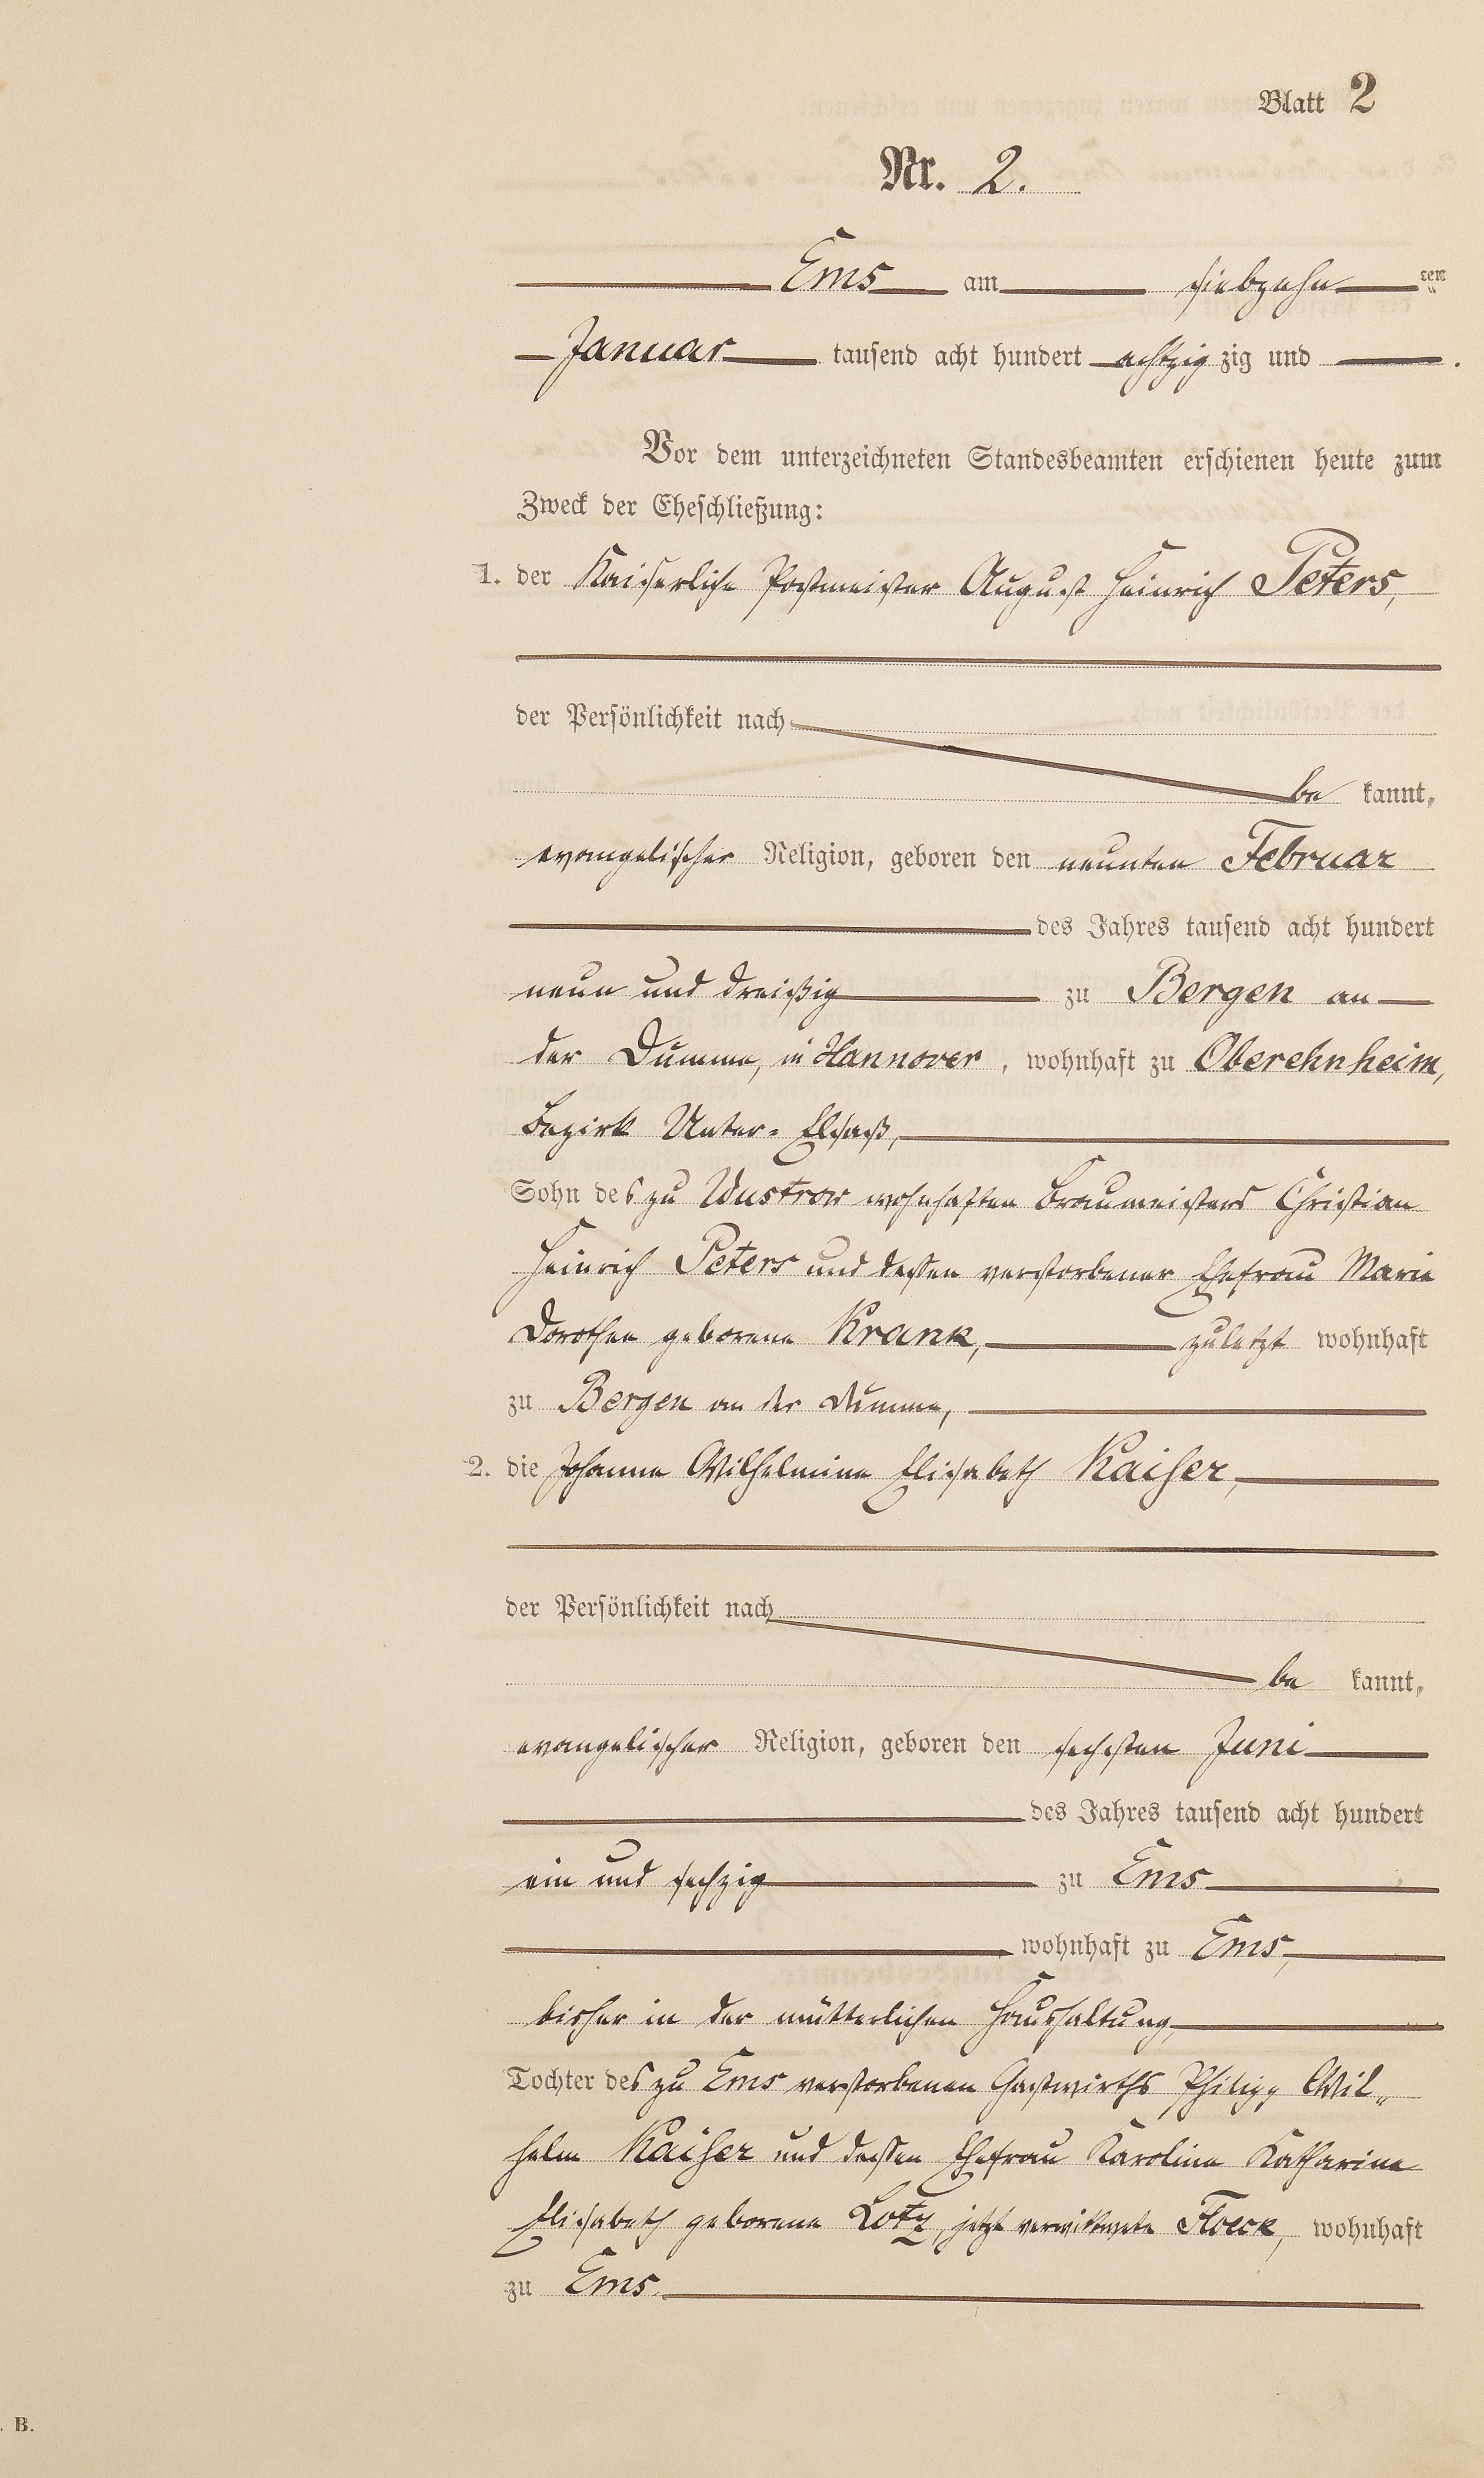 Blatt 2
Nr. 2.
Ems am siebzehn ten
Januar tausend acht hundert achtzig zig und .
Vor dem unterzeichneten Standesbeamten erschienen heute zum
Zweck der Eheschließung:
1. der Kaiserliche Postmeister August Heinrich Peters,
der Persönlichkeit nach
be kannt,
evangelischer Religion, geboren den neunten Februar
des Jahres tausend acht hundert
neun und dreißig zu Bergen an
der Dumme, in Hannover, wohnhaft zu Oberehnheim,
Bezirk Unter-Elsaß,
Sohn des zu Wustrow wohnhaften Braumeisters Christian
Heinrich Peters und dessen verstorbener Ehefrau Marie
Dorothea geborene Krank, zuletzt wohnhaft
zu Bergen an der Dumme,
2. die Johanna Wilhelmine Elisabeth Kaiser,
der Persönlichkeit nach
be kannt,
evangelischer Religion, geboren den sechsten Juni
des Jahres tausend acht hundert
ein und sechzig zu Ems
wohnhaft zu Ems,
bisher in der mütterlichen Haushaltung,
Tochter des zu Ems verstorbenen Gastwirths Philipp Wil„
helm Kaiser und dessen Ehefrau Karoline Katharine
Elisabeth geborene Lotz, jetzt verwittwete Floeck, wohnhaft
zu Ems.
. B.